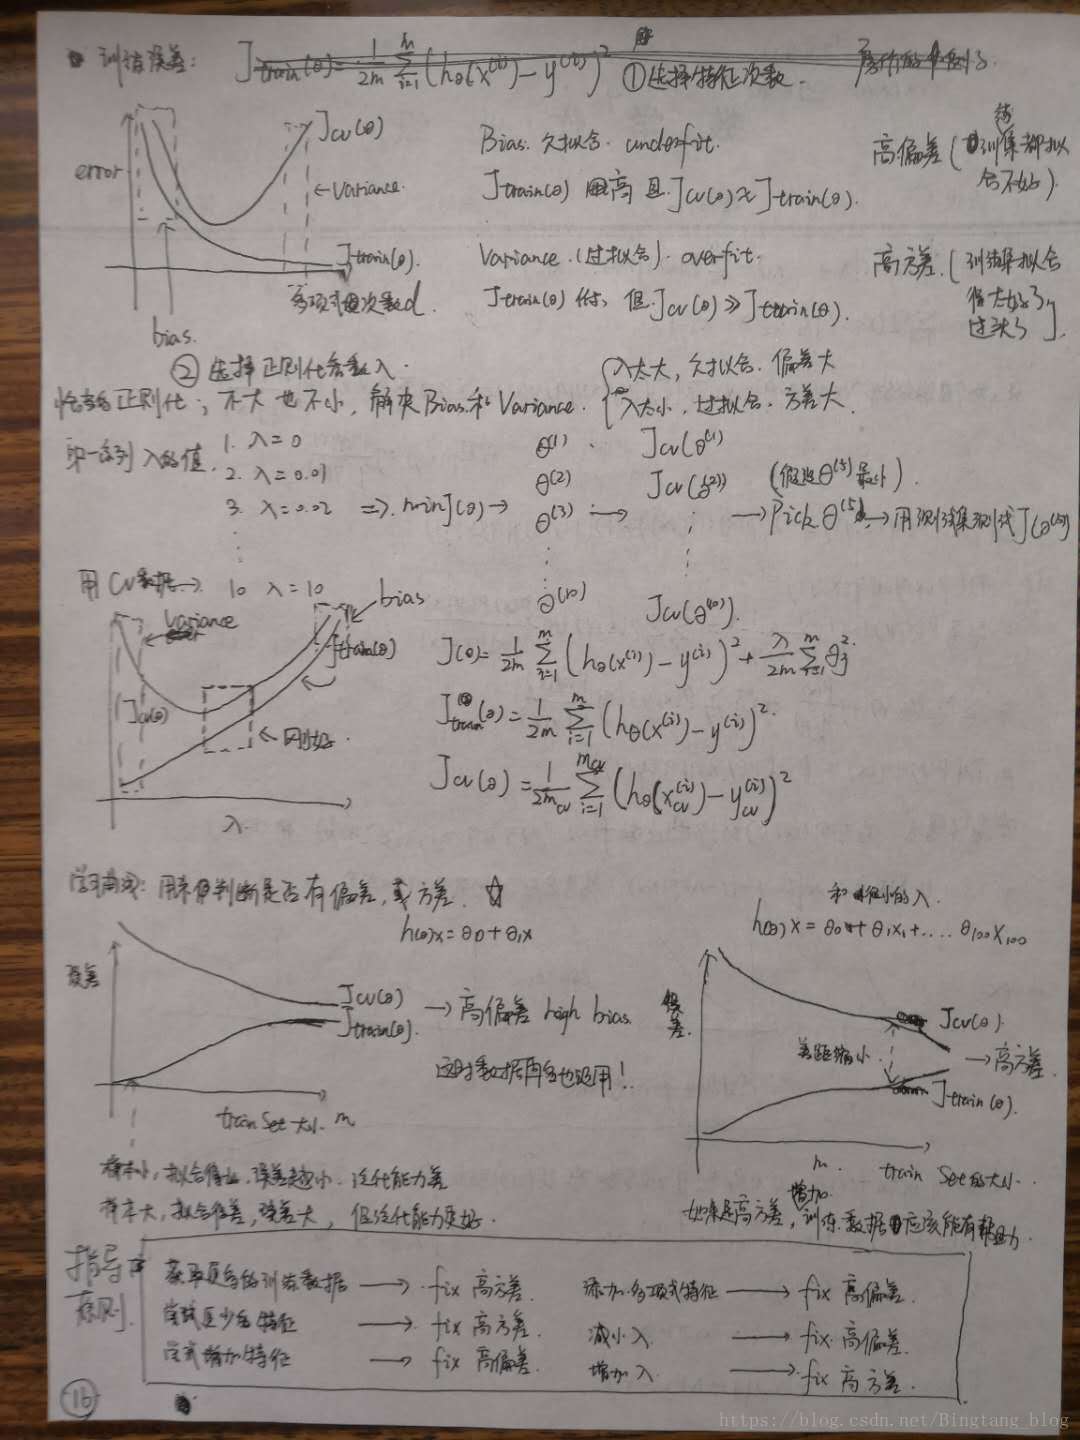 训练误差: J train(θ) = 1/2m Σ i=1 m (hθ(x^(i)) - y^(i))^2
① 选择特征次数.
error
Jcv(θ)
← Variance.
Jtrain(θ).
多项式次数d
bias.
Bias. 欠拟合. underfit.
Jtrain(θ) 高 且 Jcv(θ) ≈ Jtrain(θ).
高偏差 (训练集都拟
合不好)
Variance. (过拟合). overfit.
Jtrain(θ) 低, 但 Jcv(θ) >> Jtrain(θ).
高方差. [训练集拟合
得太好了,
过头了].
② 选择正则化参数 λ.
恰当的正则化; 不大也不小, 解决Bias和Variance.
λ太大, 欠拟合. 偏差大
λ太小, 过拟合. 方差大.
取一系列 λ的值.
1. λ=0 θ^(1) Jcv(θ^(1))
2. λ=0.01 θ^(2) Jcv(θ^(2)) (假设θ^(5)最小).
3. λ=0.02 => min J(θ) → θ^(3) → → Pick θ^(5) → 用测试集测试J(θ^(5))
用CV数据→ 10 λ=10 θ^(10) Jcv(θ^(10)).
Variance
bias
Jtrain(θ)
Jcv(θ)
← 刚好.
λ.
J(θ) = 1/2m Σ i=1 m (hθ(x^(i)) - y^(i))^2 + λ/2m Σ m θj^2.
Jtrain(θ) = 1/2m Σ i=1 m (hθ(x^(i)) - y^(i))^2.
Jcv(θ) = 1/2mcv Σ i=1 mcv (hθ(xcv^(i)) - ycv^(i))^2
学习曲线: 用来判断是否有偏差, 或方差. ☆
h(θ)x = θ0 + θ1x
误差
Jcv(θ)
Jtrain(θ).
→ 高偏差 high bias.
这时数据再多也没用!
train set 大小 m
和很小的λ.
h(θ)x = θ0 + θ1x1 + .... θ100 x100
误差.
Jcv(θ).
差距缩小.
→ 高方差.
Jtrain(θ).
m. train set 的大小.
样本小, 拟合得好, 误差越小. 泛化能力差
样本大, 拟合得差, 误差大, 但泛化能力更好.
如果是高方差, 增加训练数据应该能有帮助.
指导
原则
获取更多的训练数据 → fix 高方差. 添加多项式特征 → fix 高偏差.
尝试更少的特征 → fix 高方差. 减小λ → fix 高偏差.
尝试增加特征 → fix 高偏差. 增加λ → fix 高方差.
16
https://blog.csdn.net/Bingtang_blog